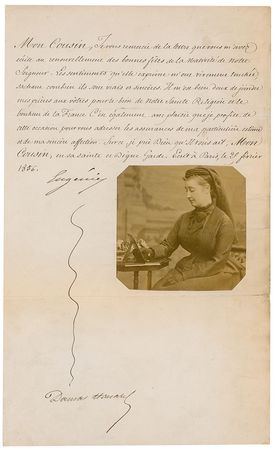 Mon Cousin, Je vous remercie de la lettre que vous m'avez
écrite au renouvellement des bonnes fêtes de la Nativité de Notre
Seigneur. Les sentiments qu'elle exprime m'ont vivement touchée
sachant combien ils sont vrais et sincères. Il m'est bien doux de joindre
mes prières aux vôtres pour le bien de Notre Sainte Religion et le
bonheur de la France. C'est également avec plaisir que je profite de
cette occasion pour vous adresser les assurances de ma particulière estime
et de ma sincère affection. Sur ce, je prie Dieu qu'Il vous ait, Mon
Cousin, en sa sainte et digne Garde. Ecrit à Paris, le février
1856.
Eugénie
Damas